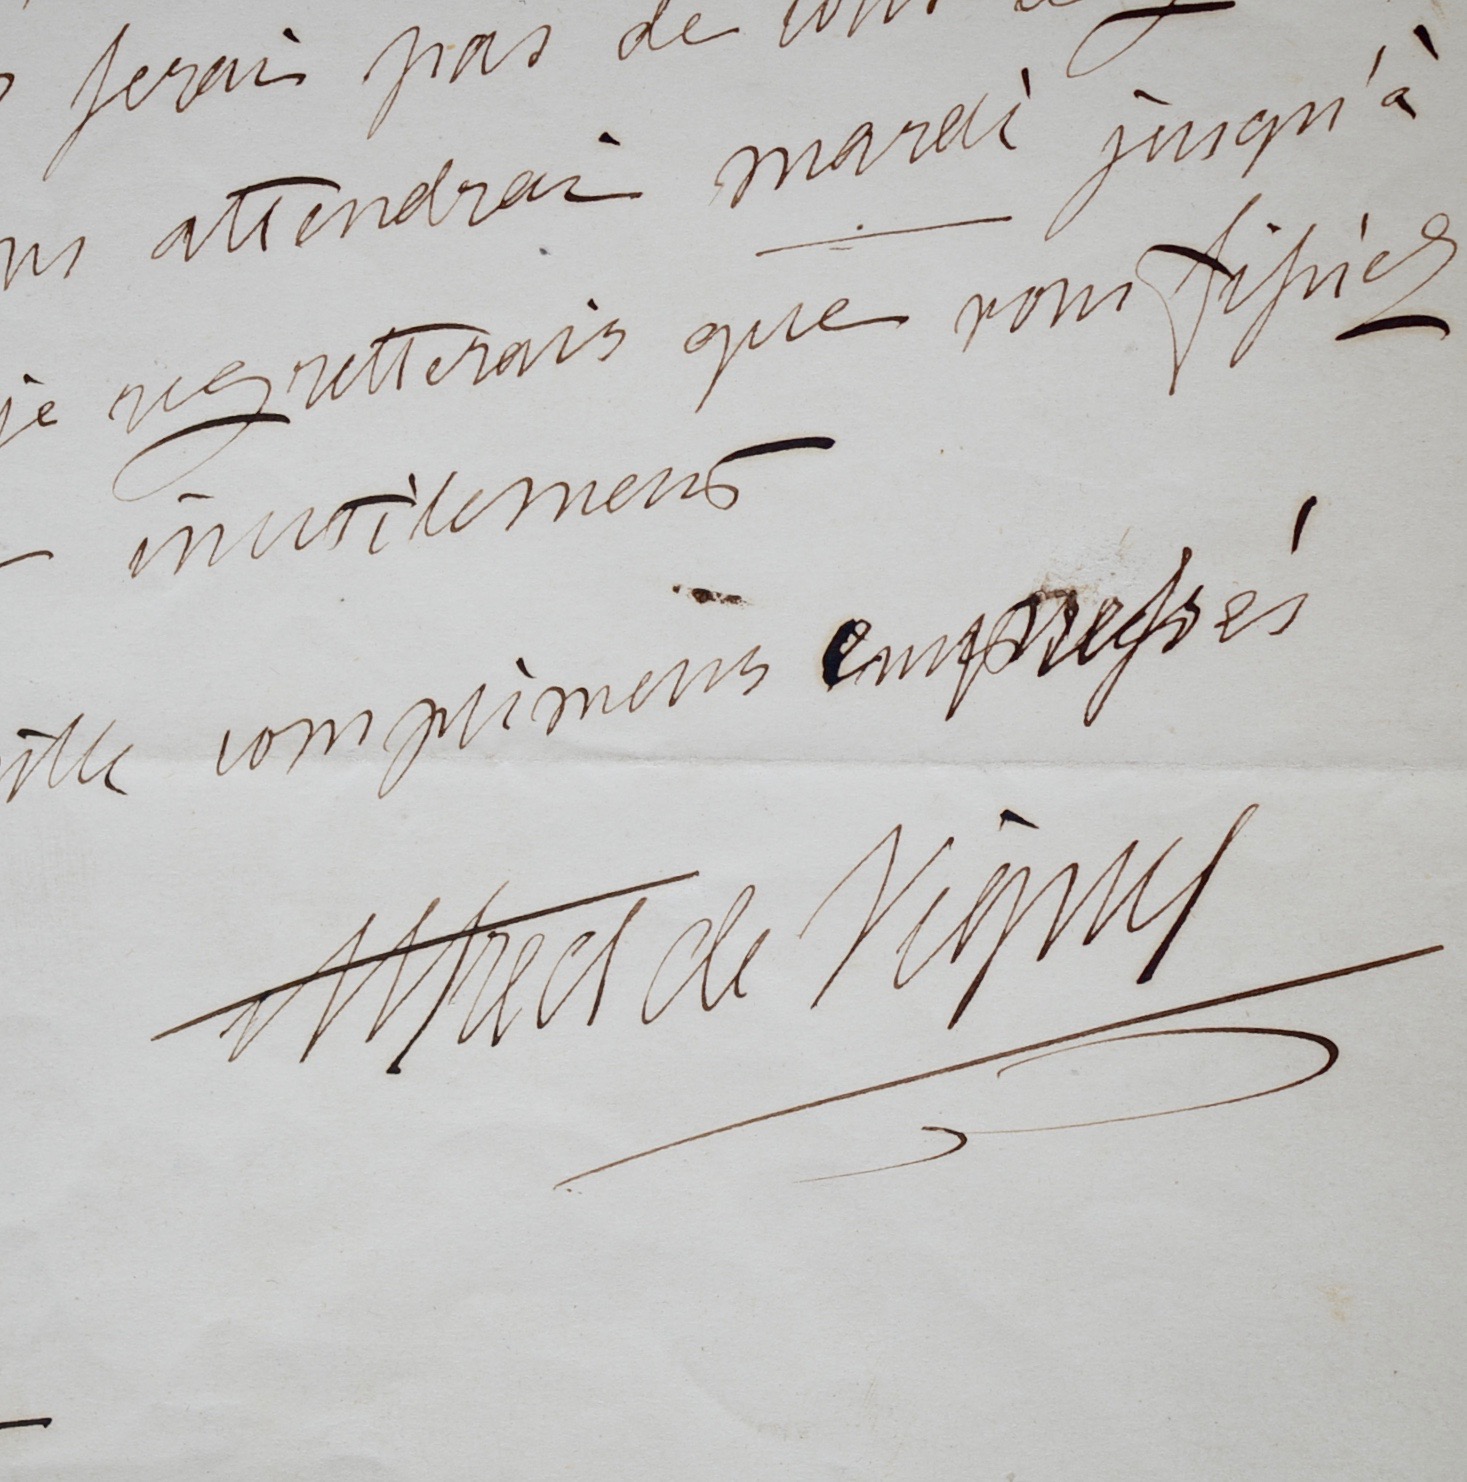 ferais pas de
attendrai mardi jusqu'à
je regretterais que vous fissiez
inutilement
complimens empressés
Alfred de Vigny